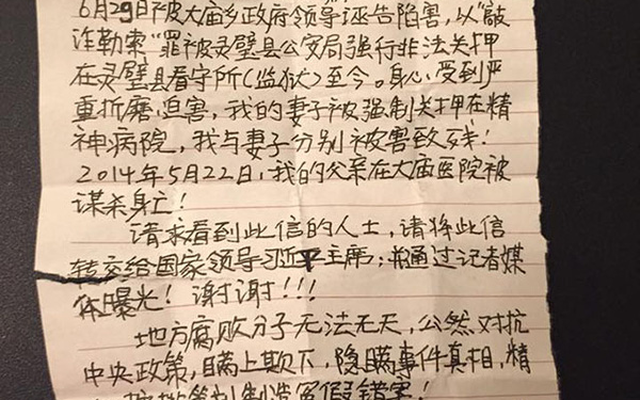 6月29日被大庙乡政府领导诬告陷害,以“敲
诈勒索”罪被灵璧县公安局强行非法关押
在灵璧县看守所(监狱)至今。身心受到严
重折磨迫害,我的妻子被强制关押在精
神病院,我与妻子分别被害致残!
2014年5月22日,我的父亲在大庙医院被
谋杀身亡!
请求看到此信的人士,请将此信
转交给国家领导习近平主席;并通过记者媒
体曝光!谢谢!!!
地方腐败分子无法无天,公然对抗
中央政策,瞒上欺下,隐瞒事件真相,精
策划制造冤假错案!